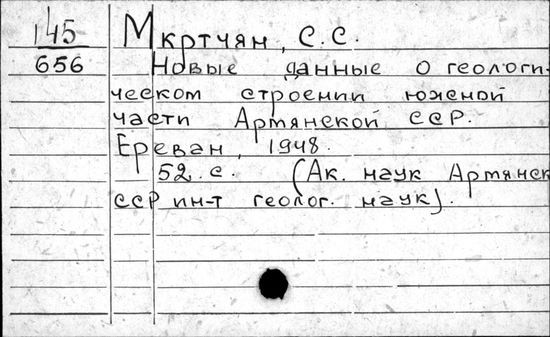 145
656
Мкртчян, С.С.
Новые данные о геологи-
ческом строении южной
части Армянской ССР.
Ереван, 1948.
52 с. (Ак. наук Армянск
ССР ин-т геолог. наук).